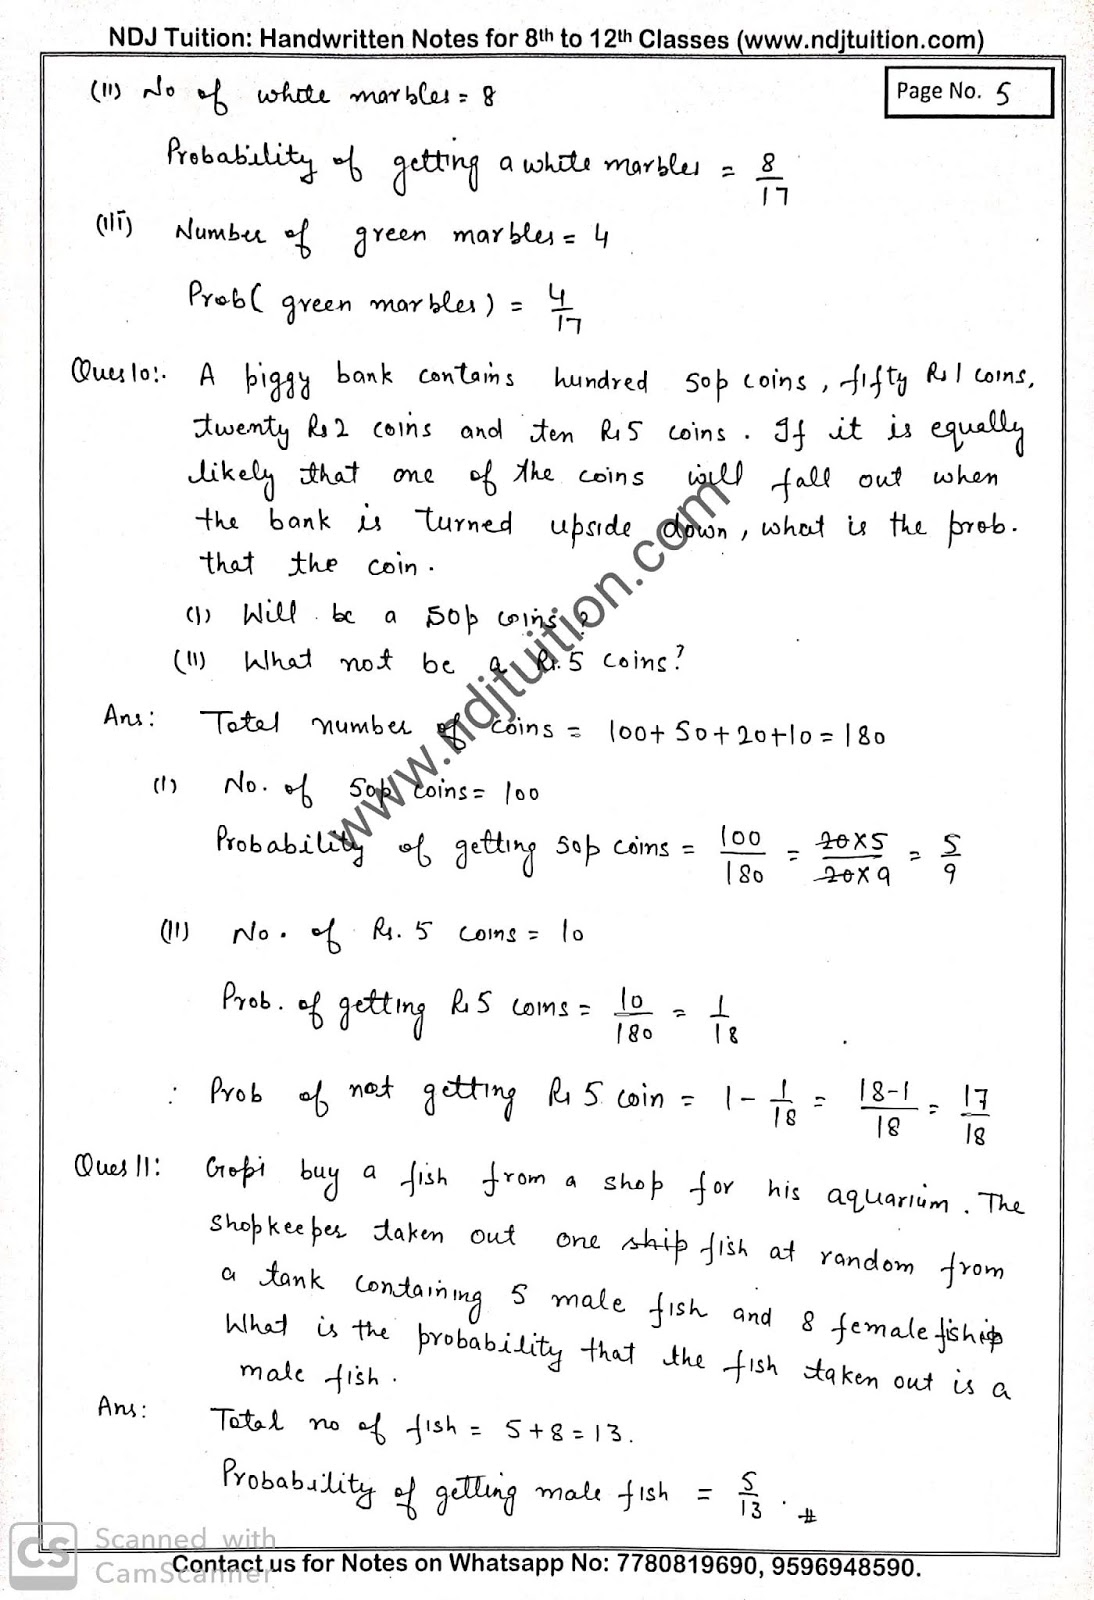 NDJ Tuition: Handwritten Notes for 8th to 12th Classes (www.ndjtuition.com)
Page No. 5
(II) No of white marbles = 8
Probability of getting a white marbles = 8/17
(III) Number of green marbles = 4
Prob( green marbles) = 4/17
Ques 10:. A piggy bank contains hundred 50p coins, fifty Rs 1 coins,
twenty Rs 2 coins and ten Rs 5 coins. If it is equally
likely that one of the coins will fall out when
the bank is turned upside down, what is the prob.
that the coin.
(I) Will be a 50p coins?
(II) What not be a Rs. 5 coins?
Ans: Total number of coins = 100+50+20+10 = 180
(I) No. of 50p coins = 100
Probability of getting 50p coins = 100/180 = 20×5/20×9 = 5/9
(II) No. of Rs. 5 coins = 10
Prob. of getting Rs 5 coins = 10/180 = 1/18
: Prob of not getting Rs 5 coin = 1 - 1/18 = 18-1/18 = 17/18
Ques 11: Gopi buy a fish from a shop for his aquarium. The
shopkeeper taken out one ship fish at random from
a tank containing 5 male fish and 8 female fish
What is the probability that the fish taken out is a
male fish.
Ans: Total no of fish = 5+8 = 13.
Probability of getting male fish = 5/13 . #
www.ndjtuition.com
CS Scanned with
CamScanner
Contact us for Notes on Whatsapp No: 7780819690, 9596948590.